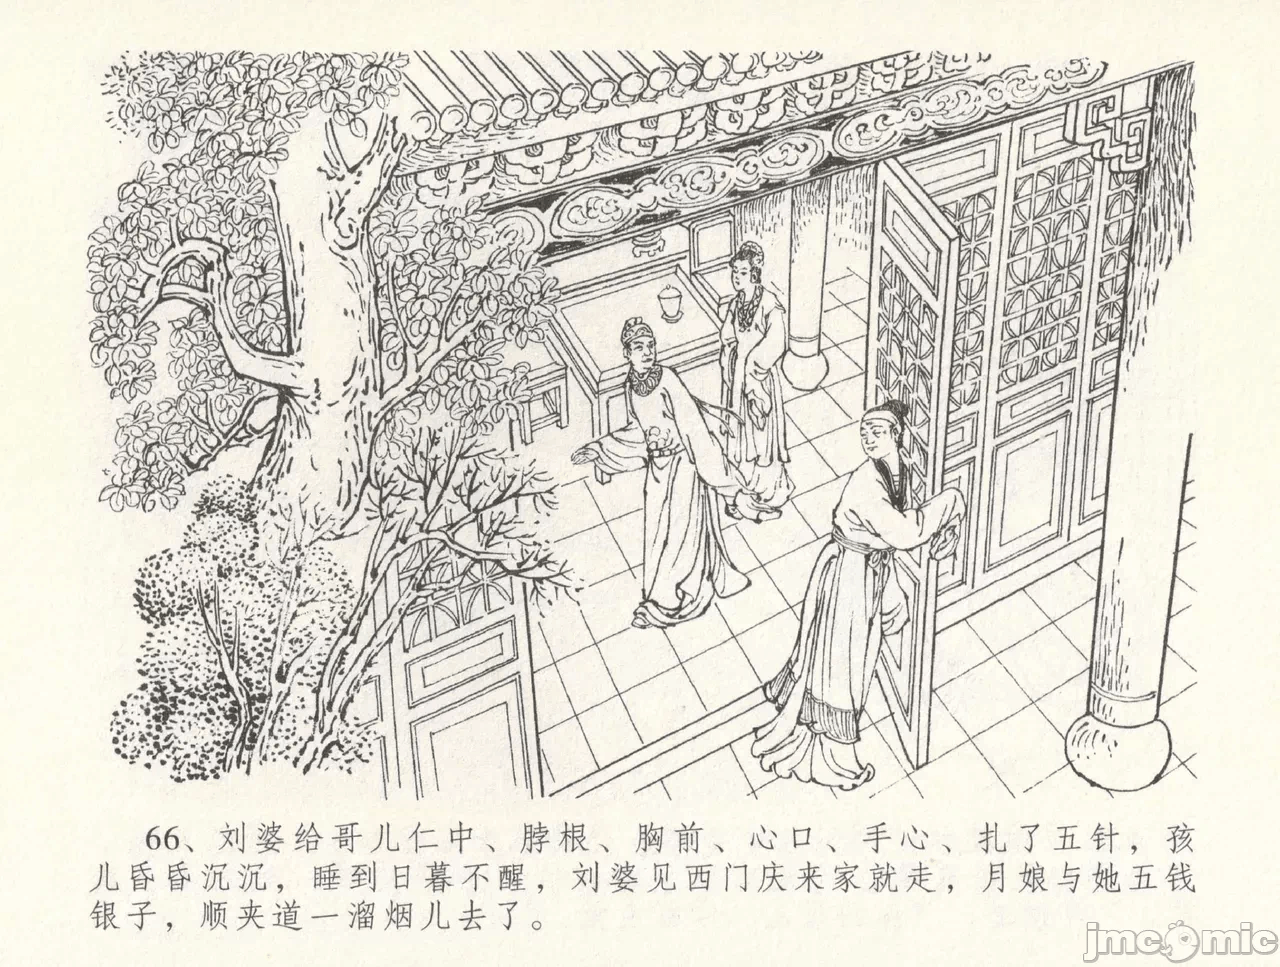 66、刘婆给哥儿仁中、脖根、胸前、心口、手心、扎了五针，孩
儿昏昏沉沉，睡到日暮不醒，刘婆见西门庆来家就走，月娘与她五钱
银子，顺夹道一溜烟儿去了。
jmcomic